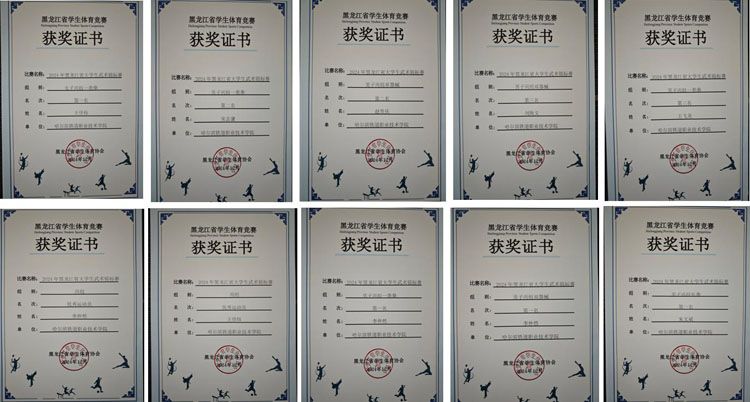 黑龙江省学生体育竞赛
Heilongjiang Province Student Sports Competition
获奖证书
比赛名称：2024 年黑龙江省大学生武术锦标赛
组 别：女子丙组一套拳
名 次：第一名
姓 名：
单 位：哈尔滨铁道职业技术学院
黑龙江省学生体育协会
2024年12月
黑龙江省学生体育竞赛
Heilongjiang Province Student Sports Competition
获奖证书
比赛名称：2024 年黑龙江省大学生武术锦标赛
组 别：男子丙组一套拳
名 次：第二名
姓 名：
单 位：哈尔滨铁道职业技术学院
黑龙江省学生体育协会
2024年12月
黑龙江省学生体育竞赛
Heilongjiang Province Student Sports Competition
获奖证书
比赛名称：2024 年黑龙江省大学生武术锦标赛
组 别：男子丙组双器械
名 次：第二名
姓 名：
单 位：哈尔滨铁道职业技术学院
黑龙江省学生体育协会
2024年12月
黑龙江省学生体育竞赛
Heilongjiang Province Student Sports Competition
获奖证书
比赛名称：2024 年黑龙江省大学生武术锦标赛
组 别：男子丙组双器械
名 次：第三名
姓 名：
单 位：哈尔滨铁道职业技术学院
黑龙江省学生体育协会
2024年12月
黑龙江省学生体育竞赛
Heilongjiang Province Student Sports Competition
获奖证书
比赛名称：2024 年黑龙江省大学生武术锦标赛
组 别：男子丙组一套拳
名 次：第三名
姓 名：
单 位：哈尔滨铁道职业技术学院
黑龙江省学生体育协会
2024年12月
黑龙江省学生体育竞赛
Heilongjiang Province Student Sports Competition
获奖证书
比赛名称：2024 年黑龙江省大学生武术锦标赛
组 别：丙组
名 次：优秀运动员
姓 名：李梓然
单 位：哈尔滨铁道职业技术学院
黑龙江省学生体育协会
2024年12月
黑龙江省学生体育竞赛
Heilongjiang Province Student Sports Competition
获奖证书
比赛名称：2024 年黑龙江省大学生武术锦标赛
组 别：丙组
名 次：优秀运动员
姓 名：
单 位：哈尔滨铁道职业技术学院
黑龙江省学生体育协会
2024年12月
黑龙江省学生体育竞赛
Heilongjiang Province Student Sports Competition
获奖证书
比赛名称：2024 年黑龙江省大学生武术锦标赛
组 别：男子丙组一套拳
名 次：第一名
姓 名：李梓然
单 位：哈尔滨铁道职业技术学院
黑龙江省学生体育协会
2024年12月
黑龙江省学生体育竞赛
Heilongjiang Province Student Sports Competition
获奖证书
比赛名称：2024 年黑龙江省大学生武术锦标赛
组 别：男子丙组双器械
名 次：第一名
姓 名：李梓然
单 位：哈尔滨铁道职业技术学院
黑龙江省学生体育协会
2024年12月
黑龙江省学生体育竞赛
Heilongjiang Province Student Sports Competition
获奖证书
比赛名称：2024 年黑龙江省大学生武术锦标赛
组 别：男子丙组
名 次：第一名
姓 名：朱文斌
单 位：哈尔滨铁道职业技术学院
黑龙江省学生体育协会
2024年12月